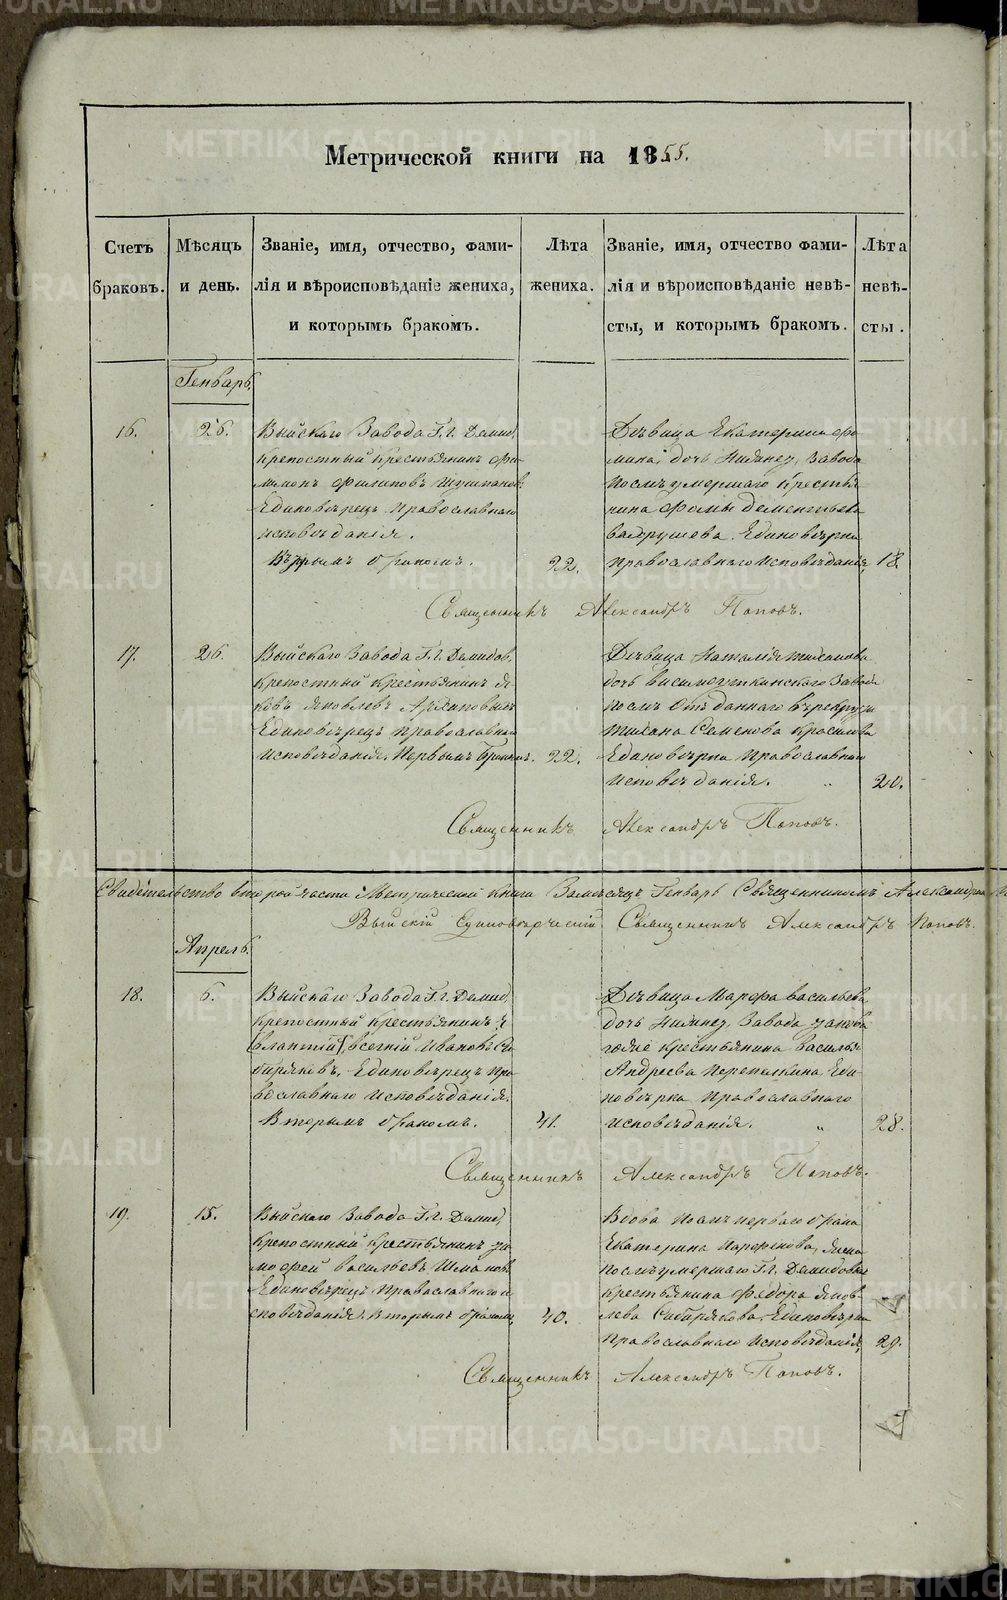 Метрической книги на 1855.
Счетъ браковъ.
Мѣсяцъ и день.
Званіе, имя, отчество, фамилія и вѣроисповѣданіе жениха, и которымъ бракомъ.
Лѣта жениха.
Званіе, имя, отчество фамилія и вѣроисповѣданіе невѣсты, и которымъ бракомъ.
Лѣта невѣсты.
Генварь.
16.
26.
Выйскаго Завода Г.г. Демид.
крепостный Крестьянинъ Фи-
лимонъ Филиповъ
Единовѣрецъ Православнаго
исповѣданія.
Вторымъ бракомъ.
22.
Дѣвица Екатерина Фо-
мина, дочь Нижнег. Завода
послѣ умершаго Крестья-
нина Фомы Дементьева
Вахрушева. Единовѣрка
Православнаго Исповѣданія,
18.
Священникъ Александръ Поповъ.
17.
26.
Выйскаго Завода Г.г. Демидов.
крепостный крестьянинъ Я-
ковъ Яковлевъ Архиповъ
Единовѣрецъ Православнаго
Исповѣданія. Первымъ бракомъ.
22.
Дѣвица Наталія Тихонова
дочь Висимоуткинскаго Завода
послѣ Отъданнаго въ рекруты
Тихана Семенова Красилова
Единовѣрка Православнаго
Исповѣданія. „
20.
Священникъ Александръ Поповъ.
Свидѣтельство второй части Метрической книги За мѣсяцъ Генварь Священникомъ Александромъ
Выйскій Единовѣрческій Священникъ Александръ Поповъ.
Апрель
18.
6.
Выйскаго Завода Г.г. Демид.
крепостный крестьянинъ
Ивановъ Си-
биряковъ, Единовѣрецъ Пра-
вославнаго исповѣданія.
Вторымъ бракомъ.
41.
Дѣвица Марфа Васильева
дочь Нижнег. Завода
крестьянина Василья
Андреева Перепалкина Еди-
новѣрка Православнаго
исповѣданія. „
28.
Священникъ Александръ Поповъ.
19.
15.
Выйскаго Завода Г.г. Демид.
крепостный крестьянинъ Ти-
мофей Васильевъ
Единовѣрецъ Православнаго и-
сповѣданія. Вторымъ бракомъ,
40.
Вдова послѣ перваго брака
Екатерина Парфенова, жена
послѣ умершаго Г.г. Демидовыхъ
крестьянина Федора Яков-
лева Сибирякова, Единовѣрка
Православнаго Исповѣданія,
29.
Священникъ Александръ Поповъ.
METRIKI.GASO-URAL.RU